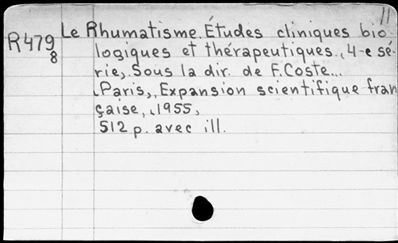 11
Le Rhumatisme. Études cliniques bio-
R479
8
logiques et thérapeutiques, 4-e sé-
rie,. Sous la dir. de F. Coste...
Paris, Expansion scientifique fran
çaise, 1955,
512 p. avec ill.